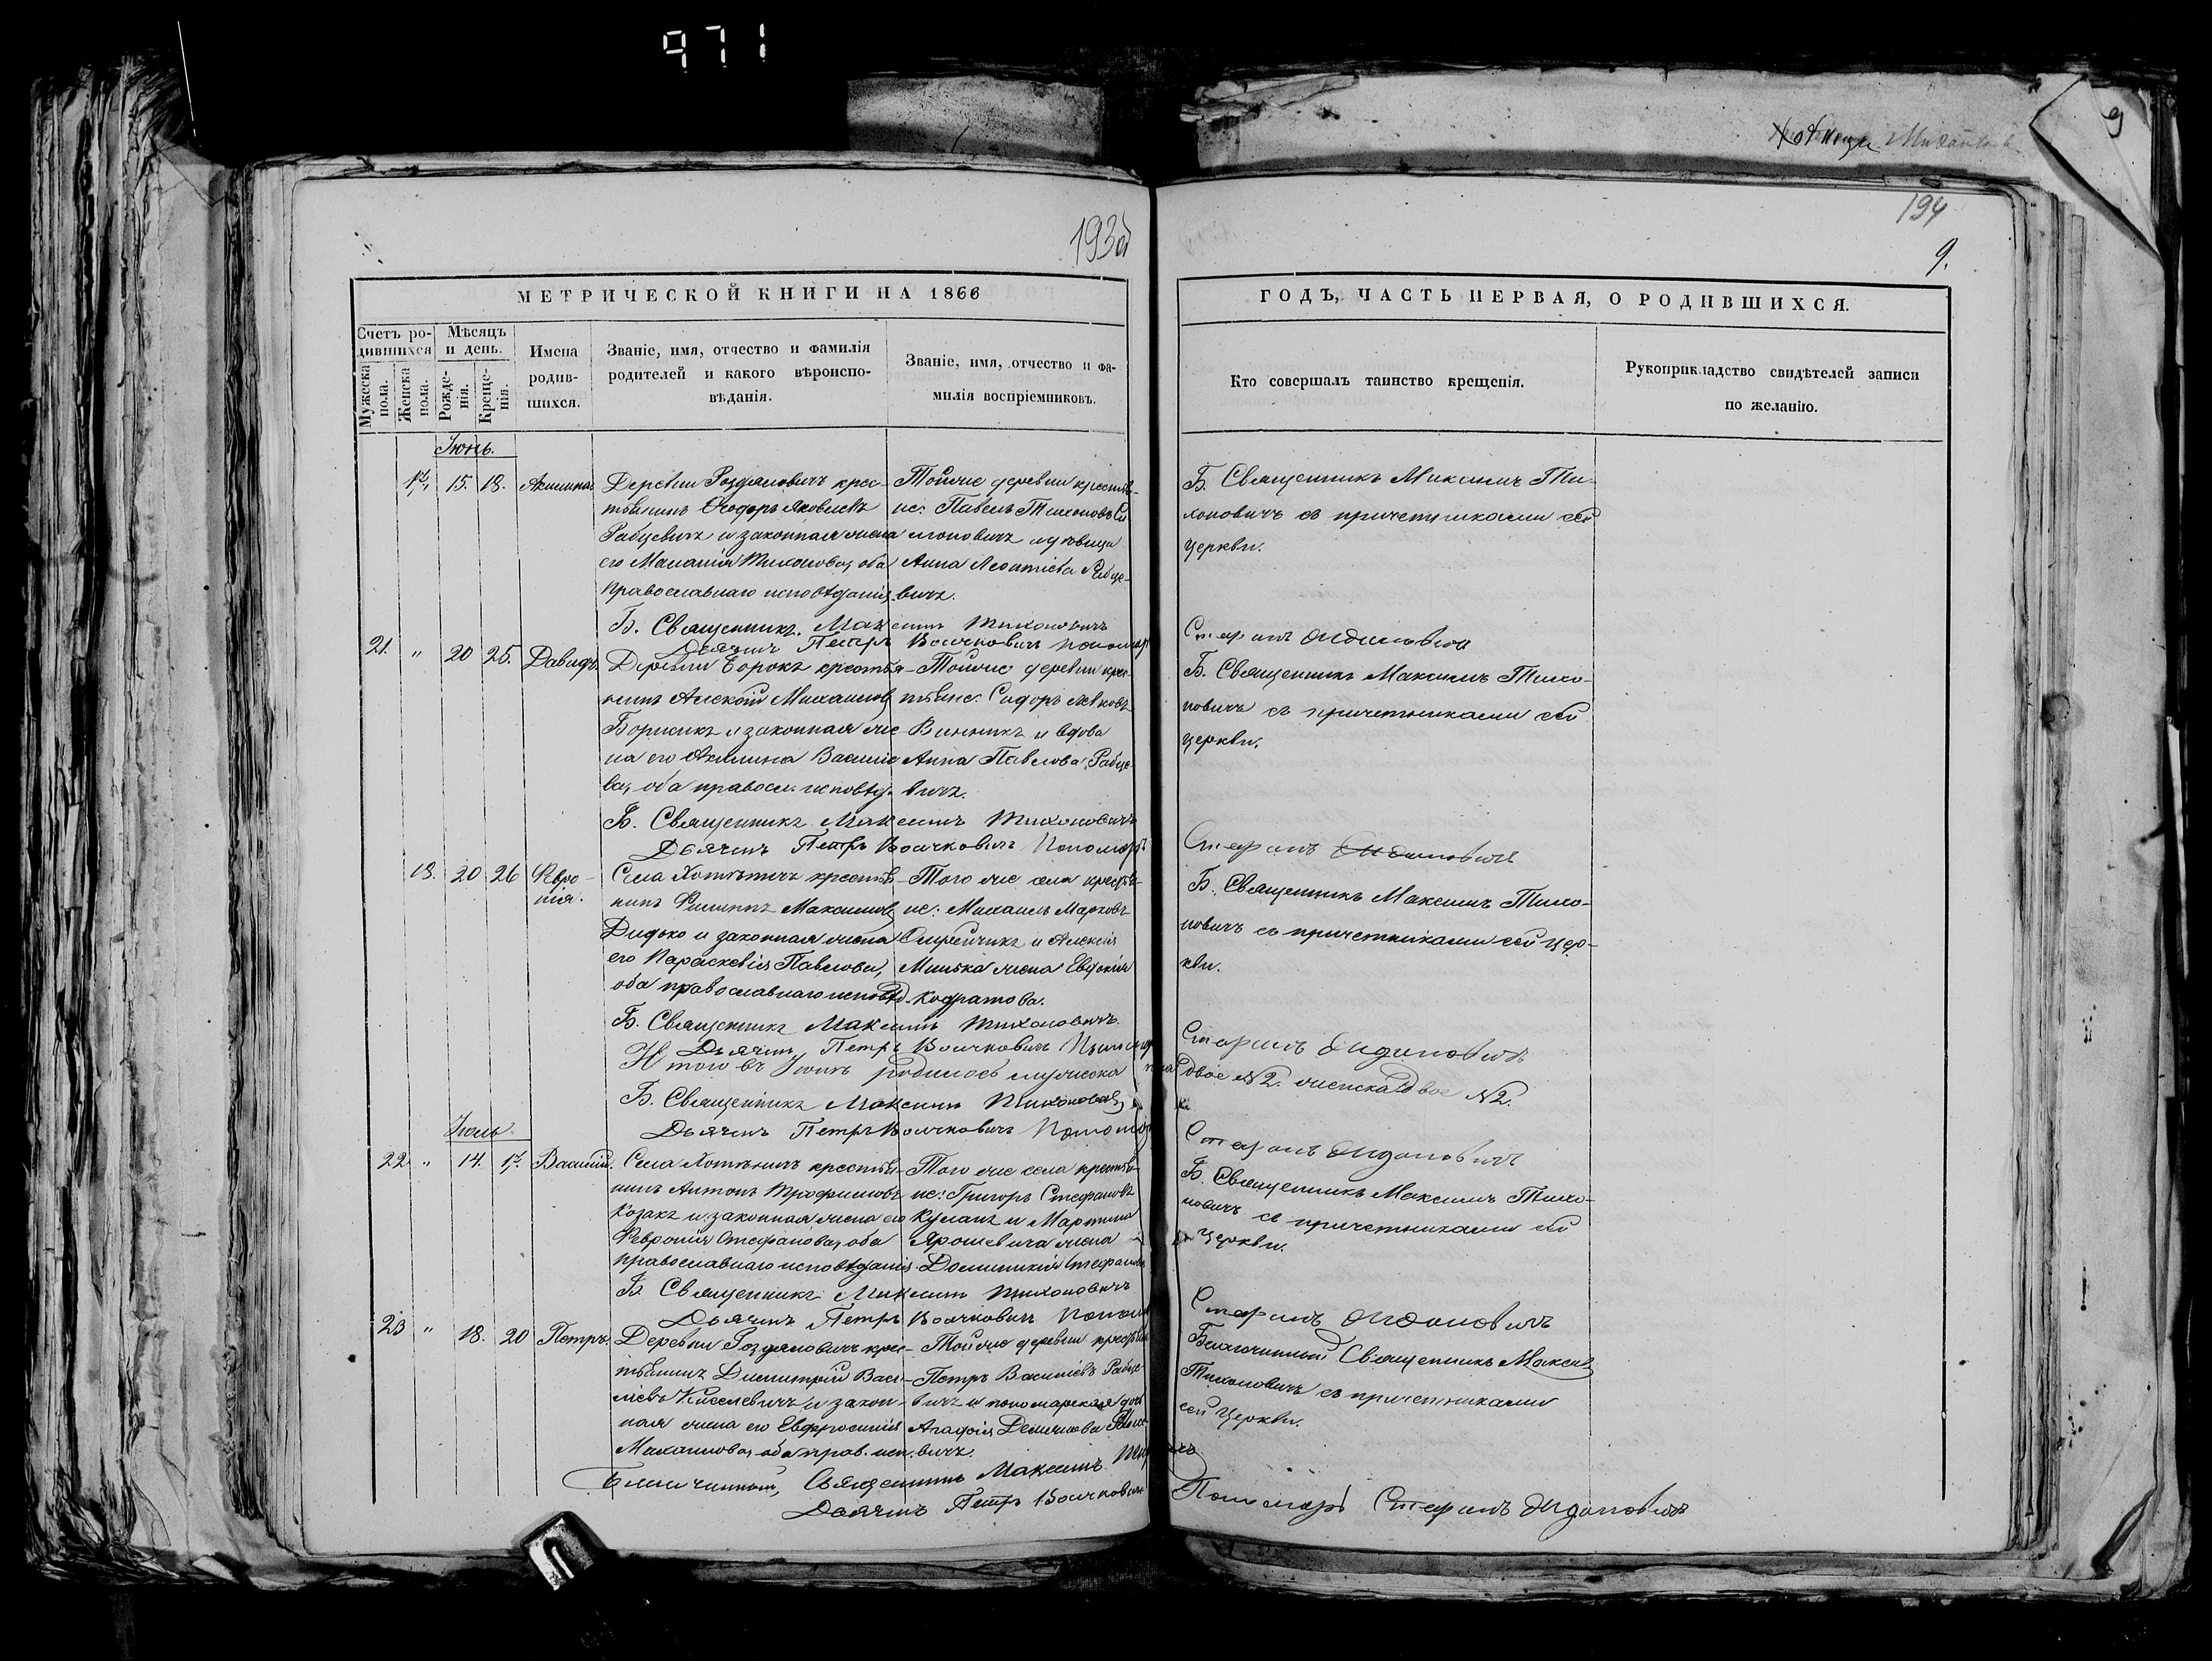 971
Хотеничи
9
193об
194
9.
МЕТРИЧЕСКОЙ КНИГИ НА 1866
Счетъ родившихся
Мужеска пола.
Женска пола.
Мѣсяцъ и день.
Рожденія.
Крещенія.
Имена родившихся.
Званіе, имя, отчество и фамилія
родителей и какого вѣроиспо-
вѣданія.
Званіе, имя, отчество и фа-
милія воспріемниковъ.
Іюнь.
17. 15. 18. Акилина
Деревни Роздяловичъ крес-
тьянинъ Ѳеодоръ Яковлевъ
Рабцевичъ и законная жена
его Маланія Тихонова, оба
православнаго исповѣданія.
Тойже деревни крестья-
не: Павелъ Тихоновъ Си-
моновичъ и дѣвица
Анна Леонтіева Рабце-
вичъ.
Б. Священникъ Максимъ Тихоновичъ
Дьячекъ Петръ Волчковичъ Пономарь
21. " 20 25. Давидъ.
Деревни Борокъ крестья-
нинъ Алексѣй Михаиловъ
Борисикъ и законная же-
на его Акилина Василіе-
ва, оба правосл. исповѣд.
Тойже деревни крес-
тьяне: Сидоръ
Винникъ и вдова
Анна Павлова Рабце-
вичъ.
Б. Священникъ Максимъ Тихоновичъ
Дьячекъ Петръ Волчковичъ Пономарь
18. 20 26 Февро-
нія.
Села Хотѣничъ крестья-
нинъ Филиппъ Максимовъ
Дидько и законная жена
его Параскевія Павлова,
оба православнаго исповѣд.
Того же села крестья-
не: Михаилъ Марковъ
и Алексія
Минька жена Евдокія
Кодратова.
Б. Священникъ Максимъ Тихоновичъ.
Дьячекъ Петръ Волчковичъ Пономарь
Итого въ Іюнѣ родилось мужеска пола двое №2. женска двое №2.
Б. Священникъ Максимъ Тихоновичъ
Дьячекъ Петръ Волчковичъ Пономарь
Іюль.
22 " 14. 17. Василій.
Села Хотѣничъ крестья-
нинъ Антонъ Трофимовъ
Козакъ и законная жена его
Февронія Стефанова, оба
православнаго исповѣданія.
Того же села крестья-
не: Григоръ Стефановъ
Куланъ и Мартина
Ярошевича жена
Доминикія Стефанова
Б. Священникъ Максимъ Тихоновичъ
Дьячекъ Петръ Волчковичъ Пономарь
23 " 18. 20 Петръ.
Деревни Роздяловичъ крес-
тьянинъ Димитрій Васи-
ліевъ Киселевичъ и закон-
ная жена его Евфросинія
Михаилова, оба прав. исп.
Тойже деревни крестьяне
Петръ Василіевъ Рабце-
вичъ и пономарская дочь
Агафія
вичъ.
Благочинный, Священникъ Максимъ
Дьячекъ Петръ Волчковичъ
ГОДЪ, ЧАСТЬ ПЕРВАЯ, О РОДИВШИХСЯ.
Кто совершалъ таинство крещенія.
Рукоприкладство свидѣтелей записи
по желанію.
Б. Священникъ Максимъ Ти-
хоновичъ съ причетниками сей
церкви.
Стефанъ
Б. Священникъ Максимъ Тихо-
новичъ съ причетниками сей
церкви.
Стефанъ
Б. Священникъ Максимъ Тихо-
новичъ съ причетниками сей цер-
кви.
Стефанъ
Стефанъ
Б. Священникъ Максимъ Тихо-
новичъ съ причетниками сей
церкви.
Стефанъ
Благочинный Священникъ Максимъ
Тихоновичъ съ причетниками
сей церкви.
Пономарь Стефанъ